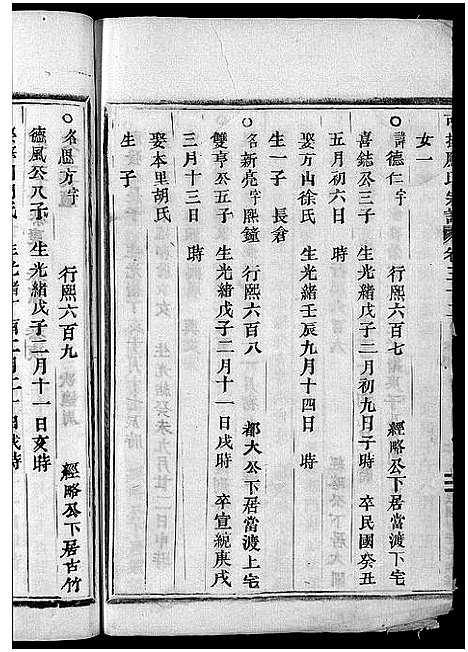 女一
諱德仁字　行熙六百七　經略公下居當渡下宅
喜鋕公三子　生光緒戊子二月初九日子時　卒民國癸丑
五月初六日　時
娶方山徐氏　生光緒壬辰九月十四日　時
生一子　長倉
名新亮字熙鐘　行熙六百八　都大公下居當渡上宅
雙亨公五子　生光緒戊子二月十一日戌時　卒宣統庚戌
三月十三日　時
娶本里胡氏
生子
名恩方字　行熙六百九　經略公下居古竹
德風公八子　生光緒戊子二月十一日亥時